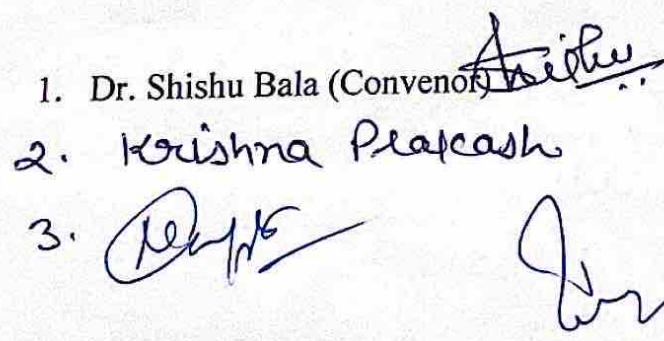 1. Dr. Shishu Bala (Convenor) Shishu
2. Krishna Prakash
3.